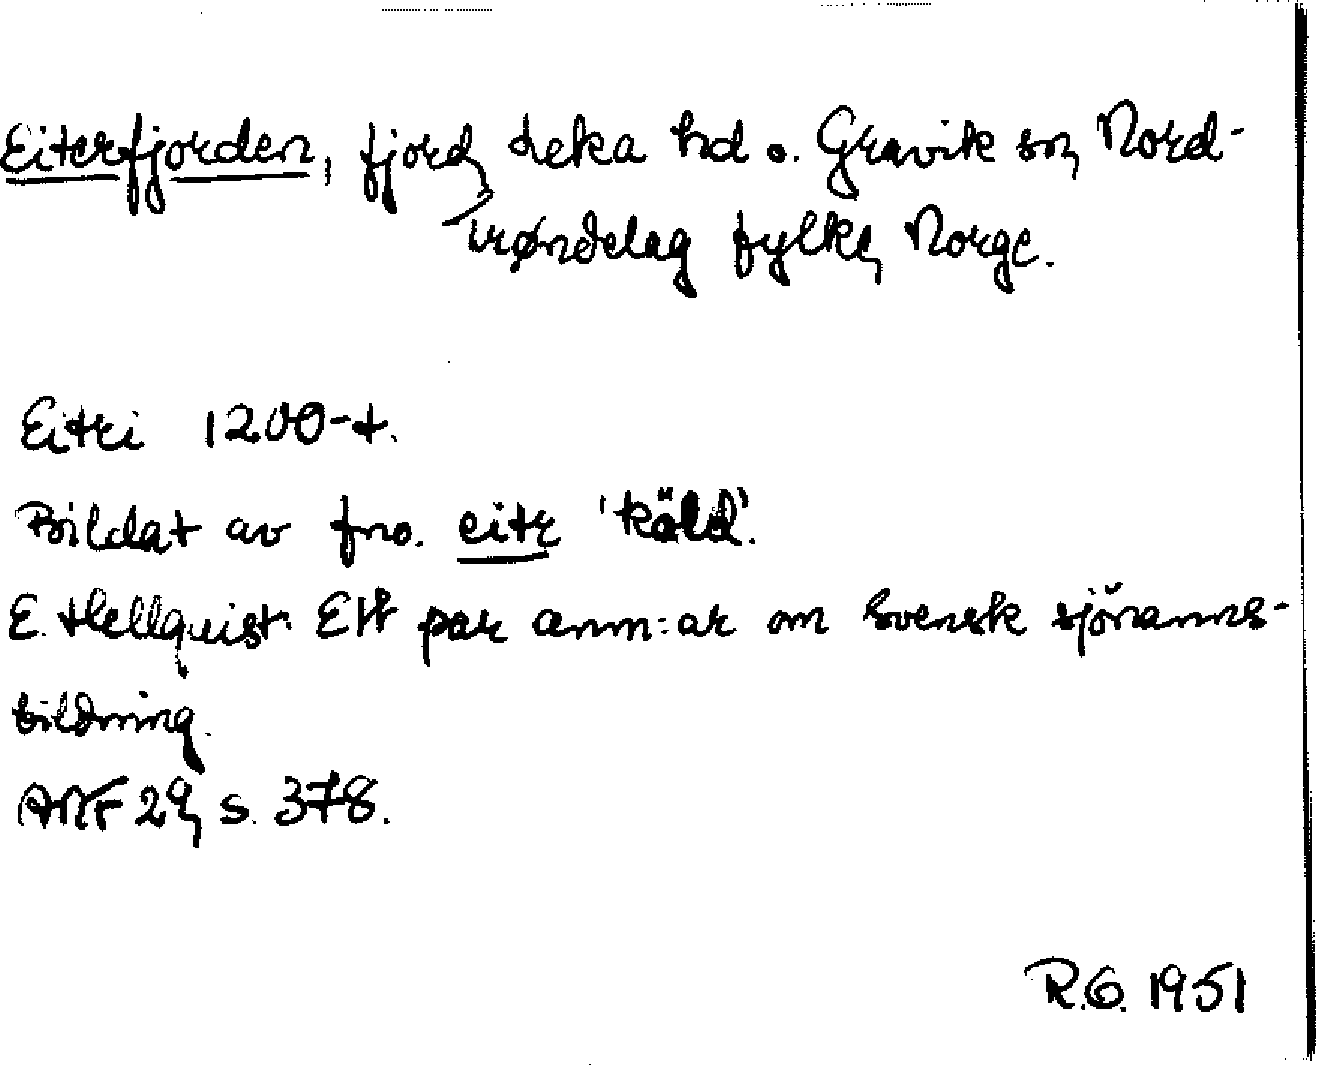 Eiterfjorden, fjord, Leka hd o. Gravik sn, Nord-
Trøndelag fylke, Norge.
Eitri 1200-t.
Bildat av fno. eitr 'köld'.
E. Hellquist. Ett par anm:ar om svensk sjönamns-
bildning.
ANF 29, s. 378.
R.G. 1951